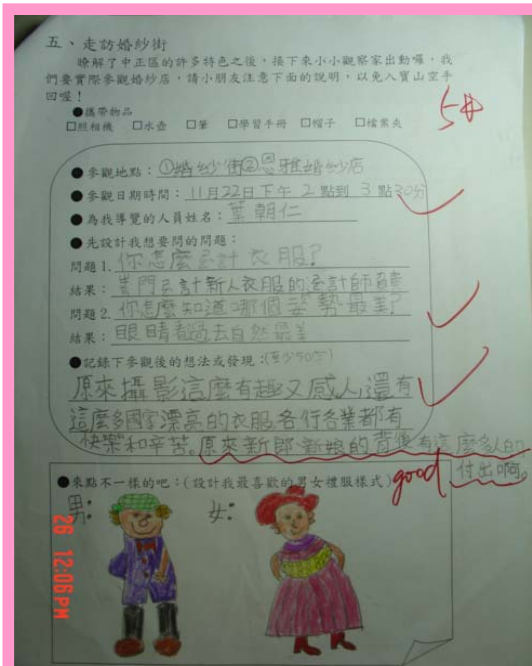 五、走訪婚紗街
瞭解了中正區的許多特色之後，接下來小小觀察家出動囉，我
們要實際參觀婚紗店，請小朋友注意下面的說明，以免入寶山空手
回喔！
●攜帶物品
□照相機 □水壺 □筆 □學習手冊 □帽子 □檔案夾
●參觀地點：①婚紗街②恩雅婚紗店
●參觀日期時間：11月22日下午2點到3點30分
●為我導覽的人員姓名：葉朝仁
●先設計我想要問的問題：
問題1.你怎麼設計衣服？
結果：專門設計新人衣服的設計師負責
問題2.你怎麼知道哪個姿勢最美？
結果：眼睛看過去自然最美
●記錄下參觀後的想法或發現：(至少50字)
原來攝影這麼有趣又感人，還有
這麼多國家漂亮的衣服各行各業都有
快樂和辛苦。原來新郎新娘的背後有這麼多人的
付出啊。
good
●來點不一樣的吧：(設計我最喜歡的男女禮服樣式)
男：
女：
26 12:06PM